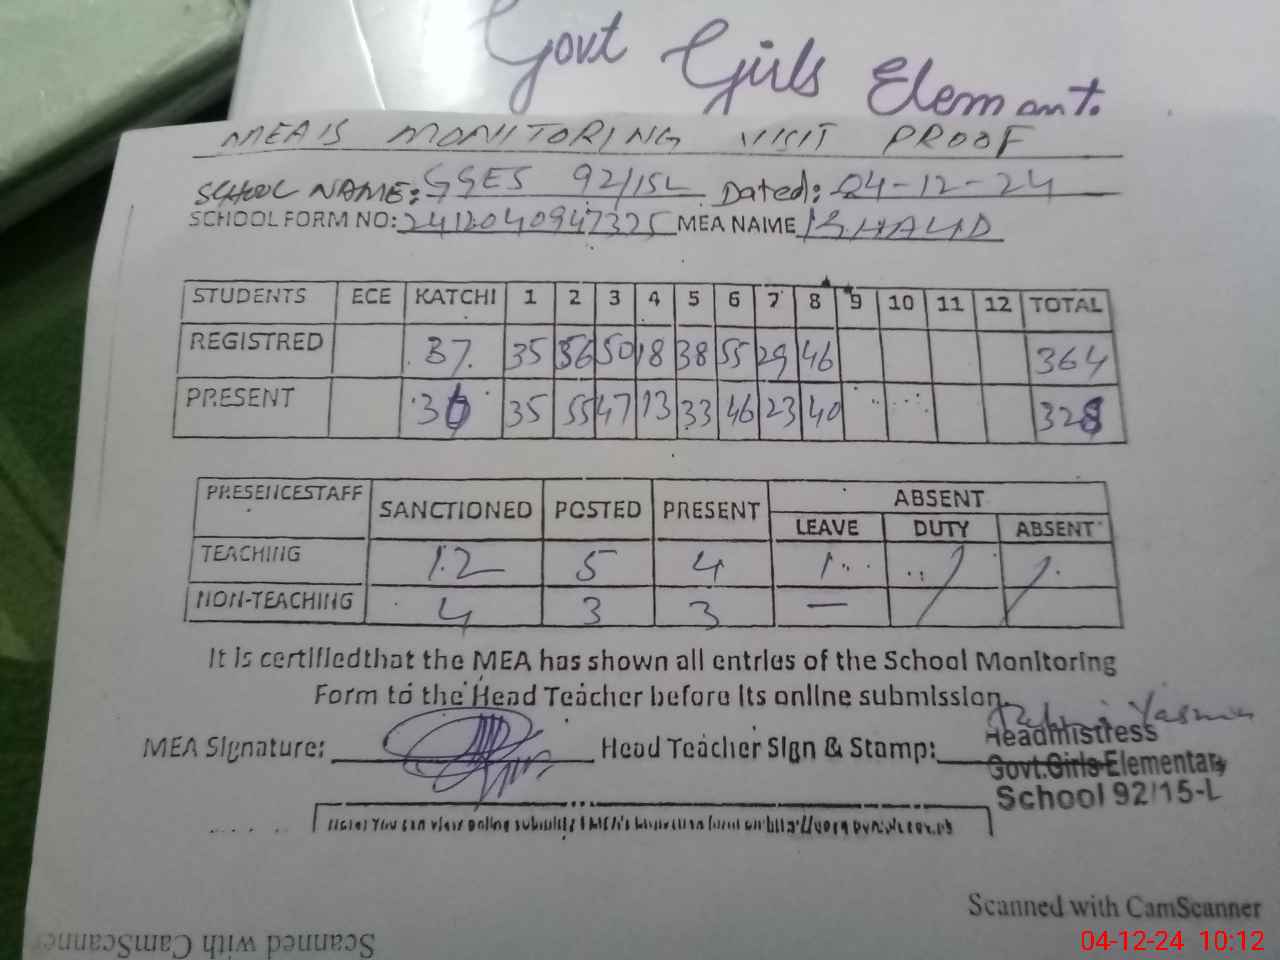 Govt Girls Elemant.
MEA'S MONITORING VISIT PROOF
SCHOOL NAME: GGES 92/15L Dated: 04-12-24
SCHOOL FORM NO: 2412040947325 MEA NAME KHALID
STUDENTS ECE KATCHI 1 2 3 4 5 6 7 8 9 10 11 12 TOTAL
REGISTRED 37 35 56 50 18 38 55 29 46 364
PRESENT 36 35 55 47 13 33 46 23 40 328
PRESENCESTAFF SANCTIONED POSTED PRESENT ABSENT
LEAVE DUTY ABSENT
TEACHING 12 5 4 1 / /
NON-TEACHING 4 3 3 —
It is certifiedthat the MEA has shown all entries of the School Monitoring
Form to the Head Teacher before its online submission.
Yasmin
MEA Signature: Head Teacher Sign & Stamp: Headmistress
Govt.Girls Elementary
School 92/15-L
Note: You can view online submitted MEA's
Scanned with CamScanner
Scanned with CamScanner
04-12-24 10:12